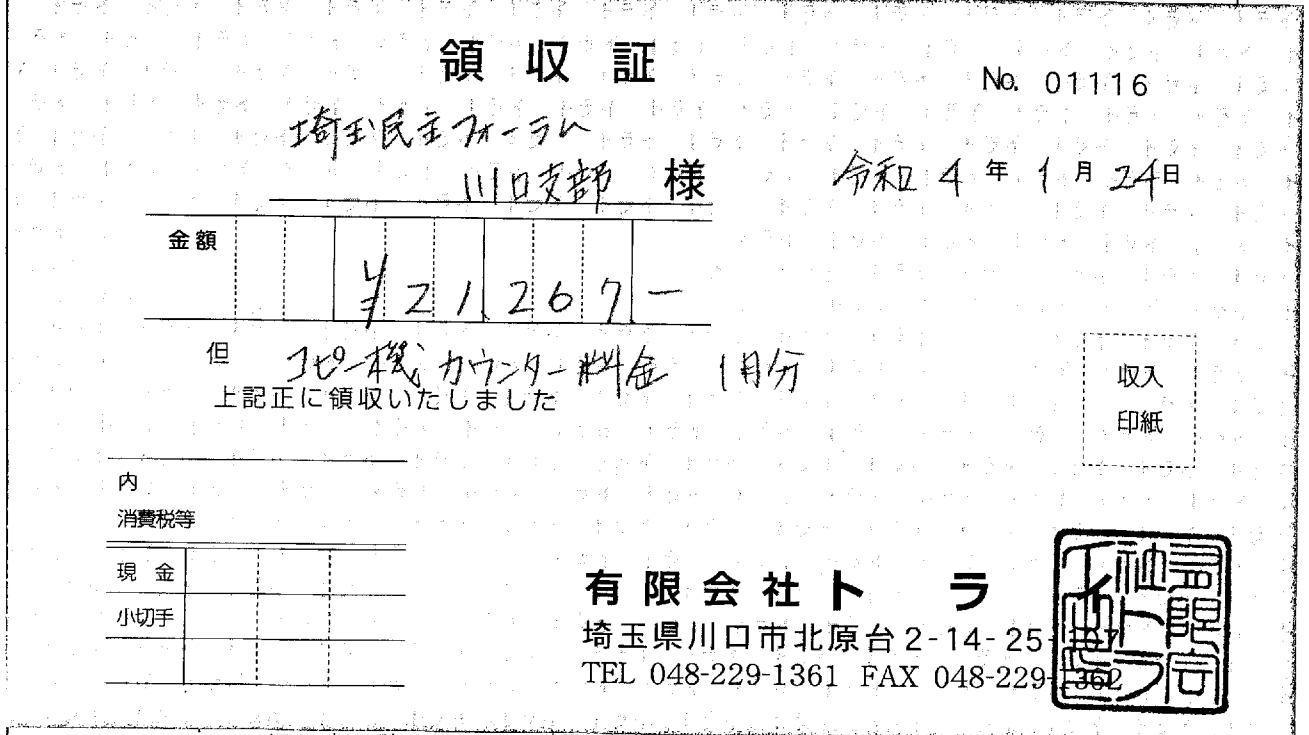 領収証
No. 01116
埼玉民主フォーラム
川口支部 様
令和 4 年 1 月 24日
金額 ¥21,267-
但 コピー機カウンター料金 1月分
上記正に領収いたしました
収入
印紙
内
消費税等
現金
小切手
有限会社トライ
埼玉県川口市北原台2-14-25-107
TEL 048-229-1361 FAX 048-229-1362